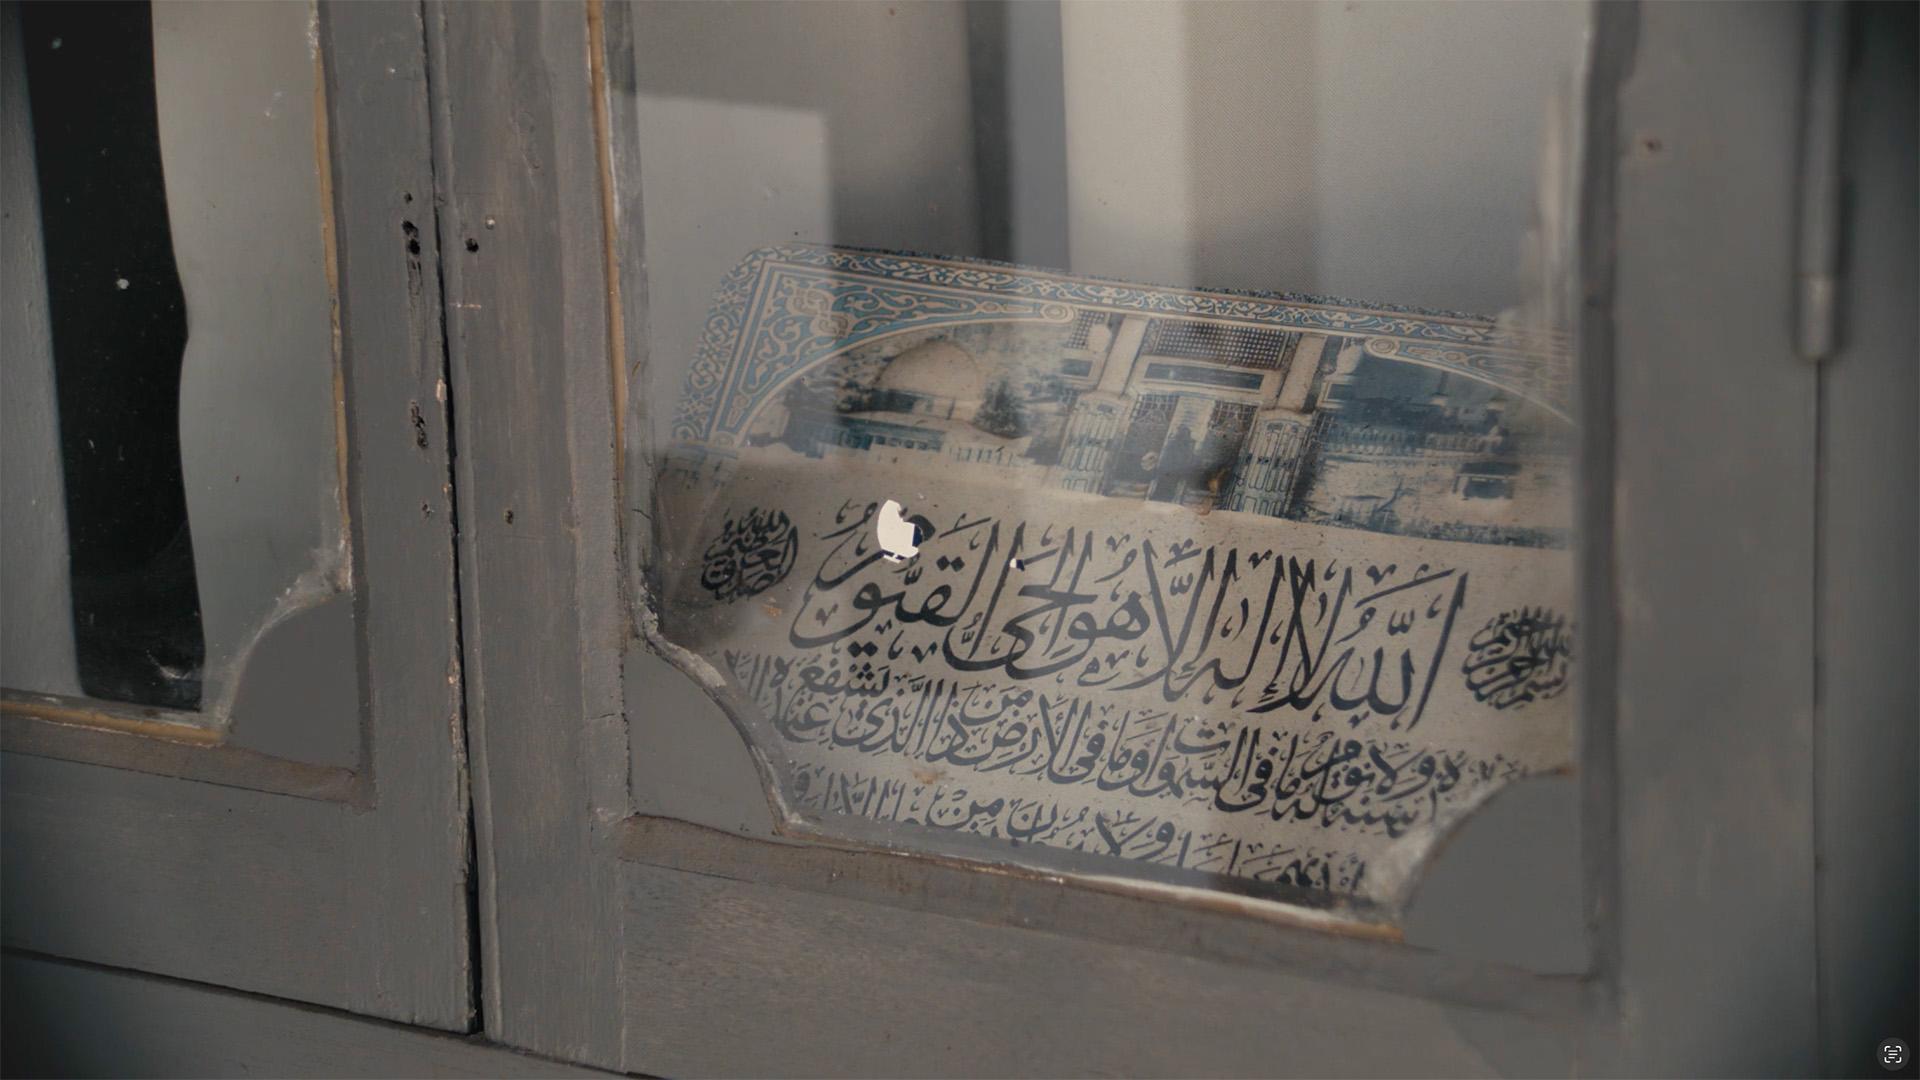 بسم الله الرحمن الرحيم
اللّٰهُ لَا إِلٰهَ إِلَّا هُوَ الْحَيُّ الْقَيُّومُ
صدق الله العلي العظيم
سِنَةٌ وَلَا نَوْمٌ لَهُ مَا فِي السَّمٰوَاتِ وَمَا فِي الْأَرْضِ مَنْ ذَا الَّذِي يَشْفَعُ عِنْدَهُ إِلَّا
وَلَا مِنْ